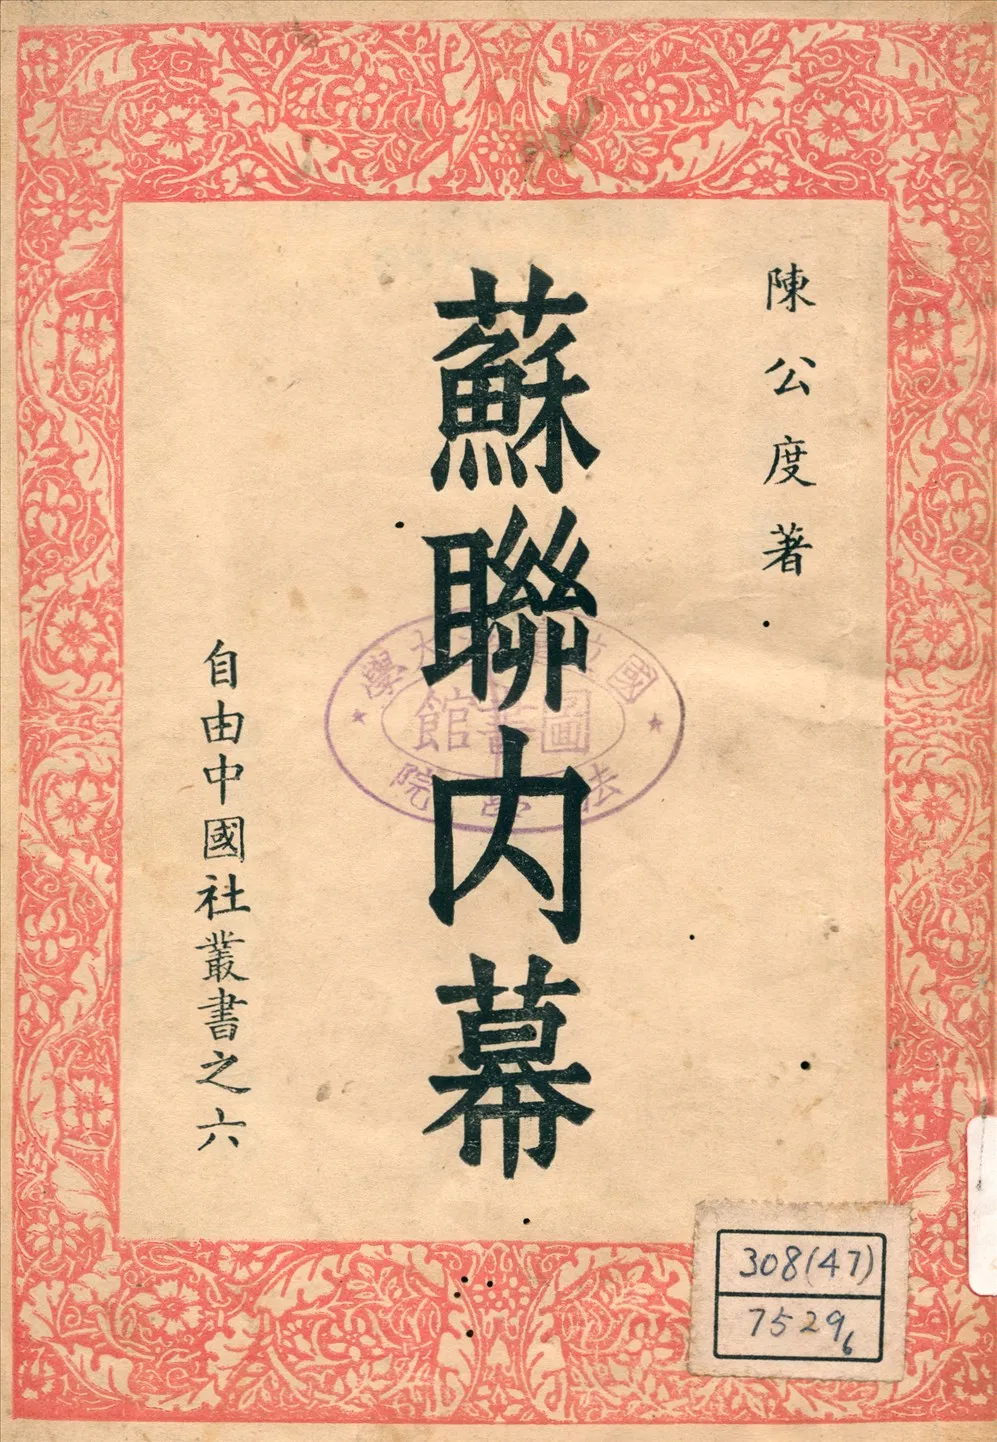 陳公度著
蘇聯內幕
自由中國社叢書之六
國立臺灣大學
圖書館
法學院
308(47)
7529₆